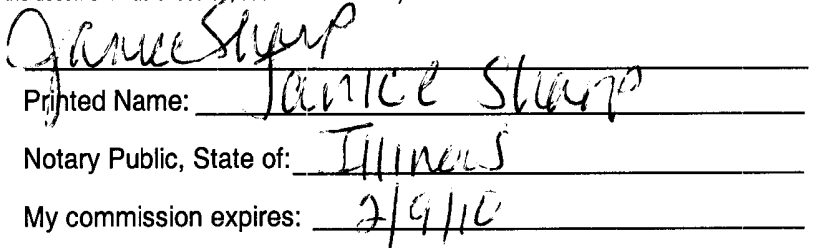 Janice Sharp
Printed Name: Janice Sharp
Notary Public, State of: Illinois
My commission expires: 2/9/10